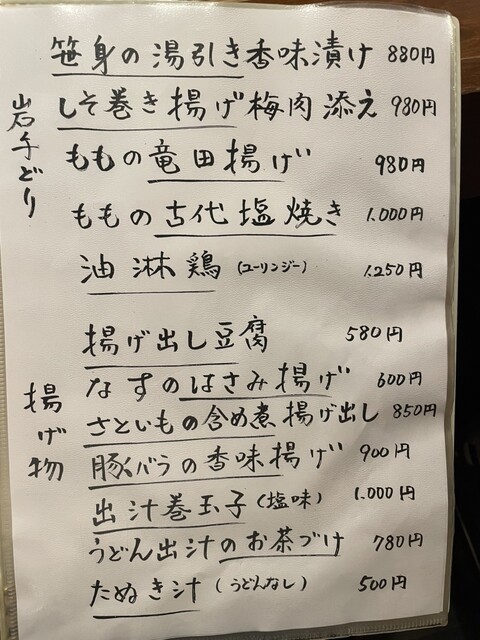 岩手どり
笹身の湯引き香味漬け 880円
しそ巻き揚げ梅肉添え 980円
ももの竜田揚げ 980円
ももの古代塩焼き 1.000円
油淋鶏(ユーリンジー) 1.250円
揚げ物
揚げ出し豆腐 580円
なすのはさみ揚げ 600円
さといもの含め煮揚げ出し 850円
豚バラの香味揚げ 900円
出汁巻玉子(塩味) 1.000円
うどん出汁のお茶づけ 780円
たぬき汁(うどんなし) 500円